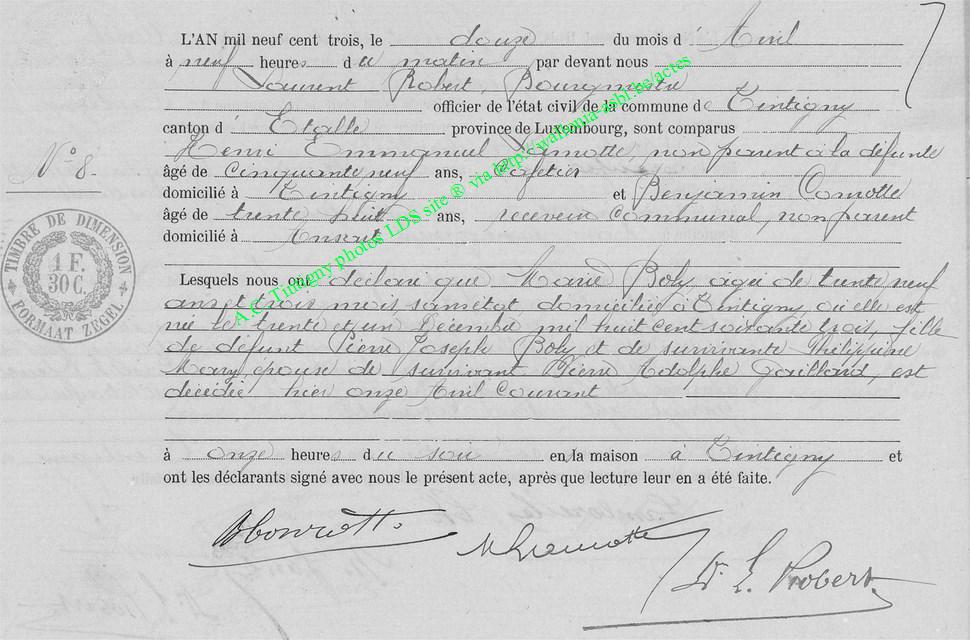 L'AN mil neuf cent trois, le douze du mois d Avril
à neuf heures du matin par devant nous
Laurent Robert, Bourgmestre
officier de l'état civil de la commune de Tintigny
canton d'Etalle province de Luxembourg, sont comparus
Henri Emmanuel Lamotte non parent à la défunte
N° 8.
âgé de cinquante neuf ans, cafetier
domicilié à Tintigny et Benjamin
âgé de trente huit ans, receveur communal, non parent
domicilié à Ansart
Lesquels nous ont déclaré que Marie Boly agée de trente neuf
ans et trois mois sans état domiciliée à Tintigny, où elle est
née le trente et un Décembre mil huit cent soixante trois, fille
de défunt Pierre Joseph Boly et de survivante Philippine
Mary épouse de survivant Pierre Adolphe Gaillard, est
décédée hier onze Avril courant
à onze heures du soir en la maison à Tintigny et
ont les déclarants signé avec nous le présent acte, après que lecture leur en a été faite.
HLamotte
Dr L. Robert
TIMBRE DE DIMENSION
1 F.
30 C.
FORMAAT ZEGEL
A.C. Tintigny photos LDS site ® via http://wallonia-asbl.be/actes